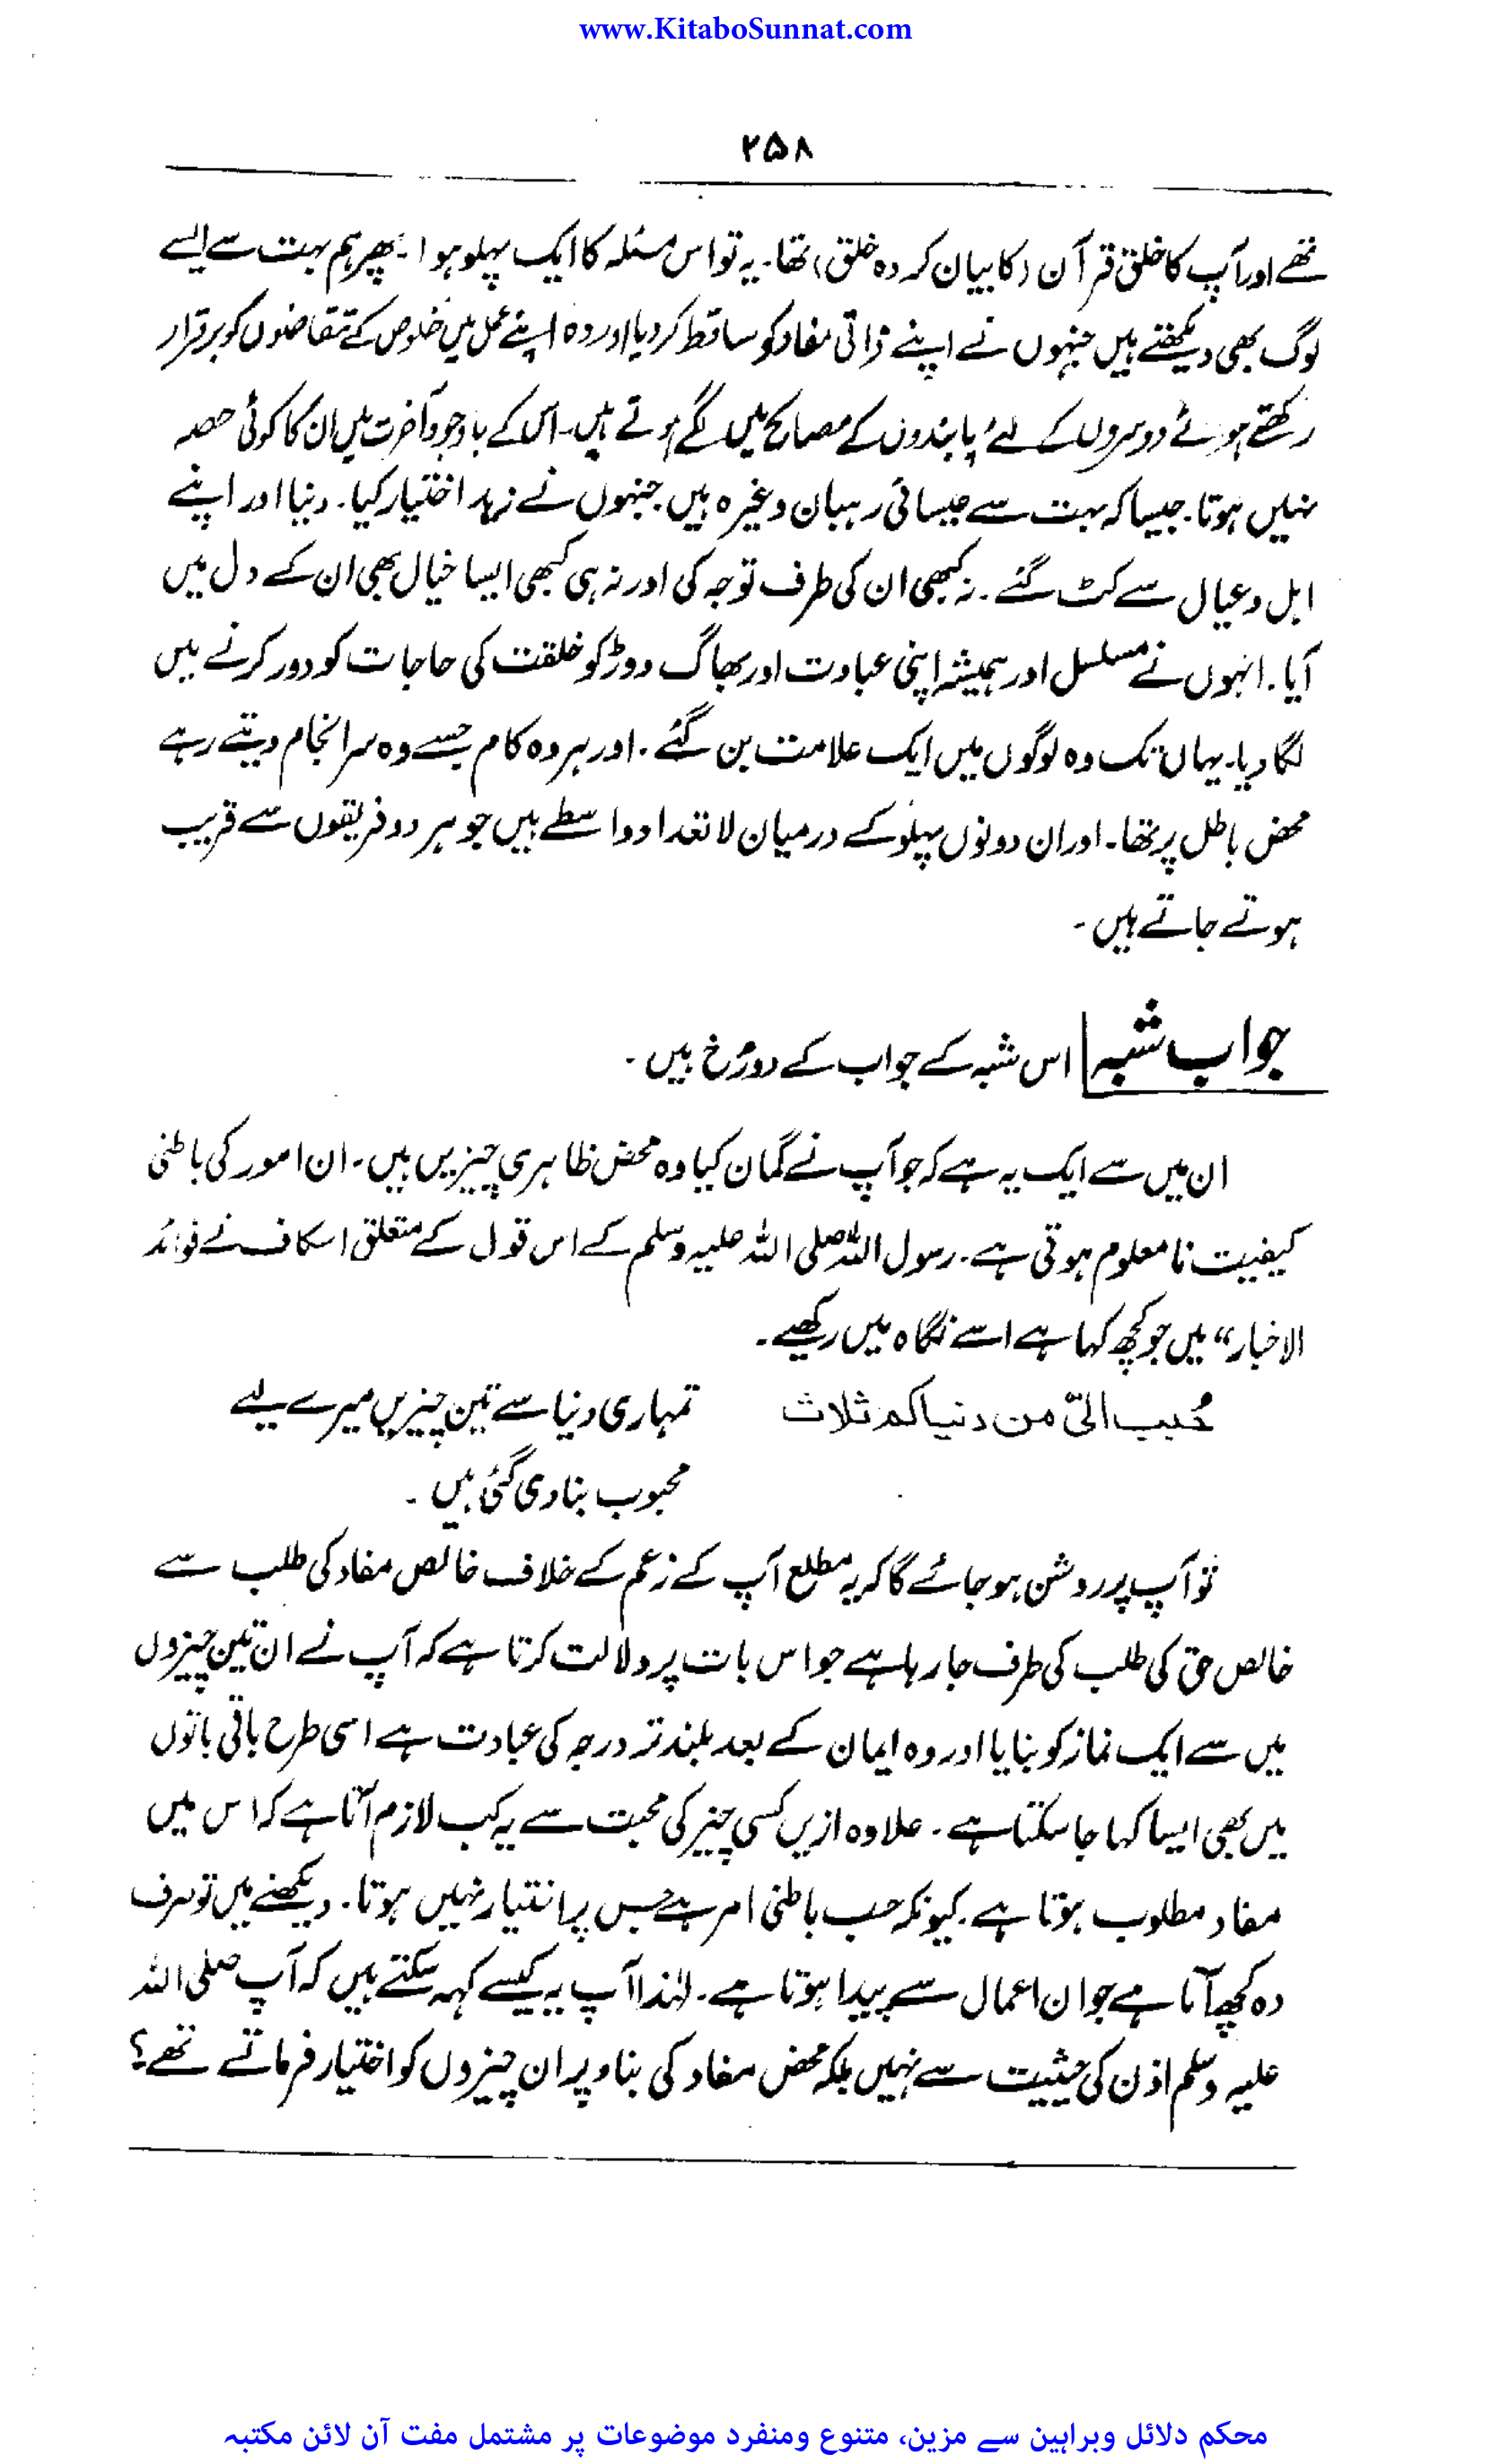 www.KitaboSunnat.com
۲۵۸
تھے اور آپ کا خلق قرآن (کا بیان کردہ خلق) تھا۔ یہ تو اس مسئلہ کا ایک پہلو ہوا۔ پھر ہم بہت سے ایسے
لوگ بھی دیکھتے ہیں جنہوں نے اپنے ذاتی مفاد کو ساقط کر دیا اور وہ اپنے عمل میں خلوص کے تقاضوں کو برقرار
رکھتے ہوئے دوسروں کے لئے یا بندوں کے مصالح میں لگے ہوتے ہیں۔ اس کے باوجود آخرت میں ان کا کوئی حصہ
نہیں ہوتا۔ جیسا کہ بہت سے عیسائی رہبان وغیرہ ہیں جنہوں نے زہد اختیار کیا۔ دنیا اور اپنے
اہل و عیال سے کٹ گئے۔ نہ کبھی ان کی طرف توجہ کی اور نہ ہی کبھی ایسا خیال بھی ان کے دل میں
آیا۔ انہوں نے مسلسل اور ہمیشہ اپنی عبادت اور بھاگ دوڑ کو خلقت کی حاجات کو دور کرنے میں
لگا دیا۔ یہاں تک وہ لوگوں میں ایک علامت بن گئے۔ اور ہر وہ کام جسے وہ سرانجام دیتے رہے
محض باطل پر تھا۔ اور ان دونوں پہلو کے درمیان لاتعداد واسطے ہیں جو ہر دو فریقوں سے قریب
ہوتے جاتے ہیں۔
جواب شبہ اس شبہ کے جواب کے دو رُخ ہیں۔
ان میں سے ایک یہ ہے کہ جو آپ نے گمان کیا وہ محض ظاہری چیزیں ہیں۔ ان امور کی باطنی
کیفیت نامعلوم ہوتی ہے۔ رسول اللہ صلی اللہ علیہ وسلم کے اس قول کے متعلق اسکاف نے فوائد
الاخبار“ میں جو کچھ کہا ہے اسے نگاہ میں رکھیے۔
حُبب الیّ من دنیاکم ثلاث تمہاری دنیا سے تین چیزیں میرے لیے
محبوب بنا دی گئی ہیں۔
تو آپ پر روشن ہو جائے گا کہ یہ مطلع آپ کے زعم کے خلاف خالص مفاد کی طلب سے
خالص حق کی طلب کی طرف جا رہا ہے جو اس بات پر دلالت کرتا ہے کہ آپ نے ان تین چیزوں
میں سے ایک نماز کو بنایا اور وہ ایمان کے بعد بلند تر درجہ کی عبادت ہے اسی طرح باقی باتوں
میں بھی ایسا کہا جا سکتا ہے۔ علاوہ ازیں کسی چیز کی محبت سے یہ کب لازم آتا ہے کہ اس میں
مفاد مطلوب ہوتا ہے۔ کیونکہ حب باطنی امر ہے جس پر اختیار نہیں ہوتا۔ دیکھنے میں تو صرف
وہ کچھ آتا ہے جو ان اعمال سے پیدا ہوتا ہے۔ لہٰذا آپ یہ کیسے کہہ سکتے ہیں کہ آپ صلی اللہ
علیہ وسلم اذن کی حیثیت سے نہیں بلکہ محض مفاد کی بناء پر ان چیزوں کو اختیار فرماتے تھے؟
محکم دلائل وبراہین سے مزین، متنوع ومنفرد موضوعات پر مشتمل مفت آن لائن مکتبہ